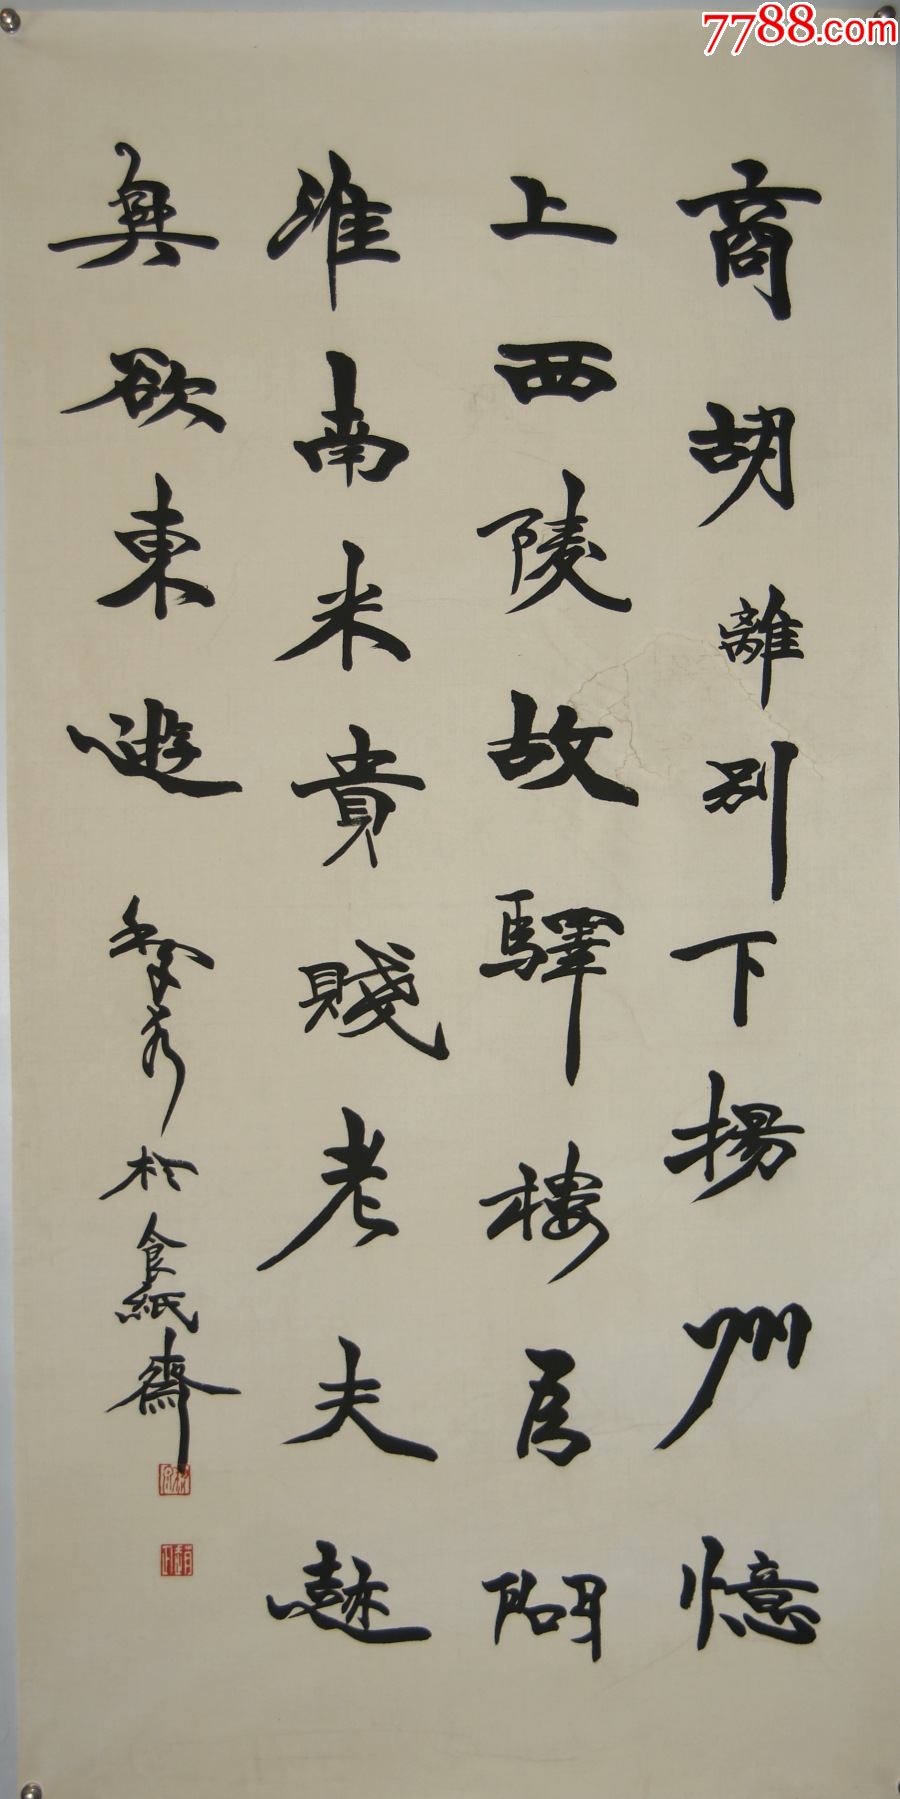 7788.com
商胡離別下揚州憶
上西陵故驛樓為問
淮南米貴賤老夫
興欲東遊
於食紙齋